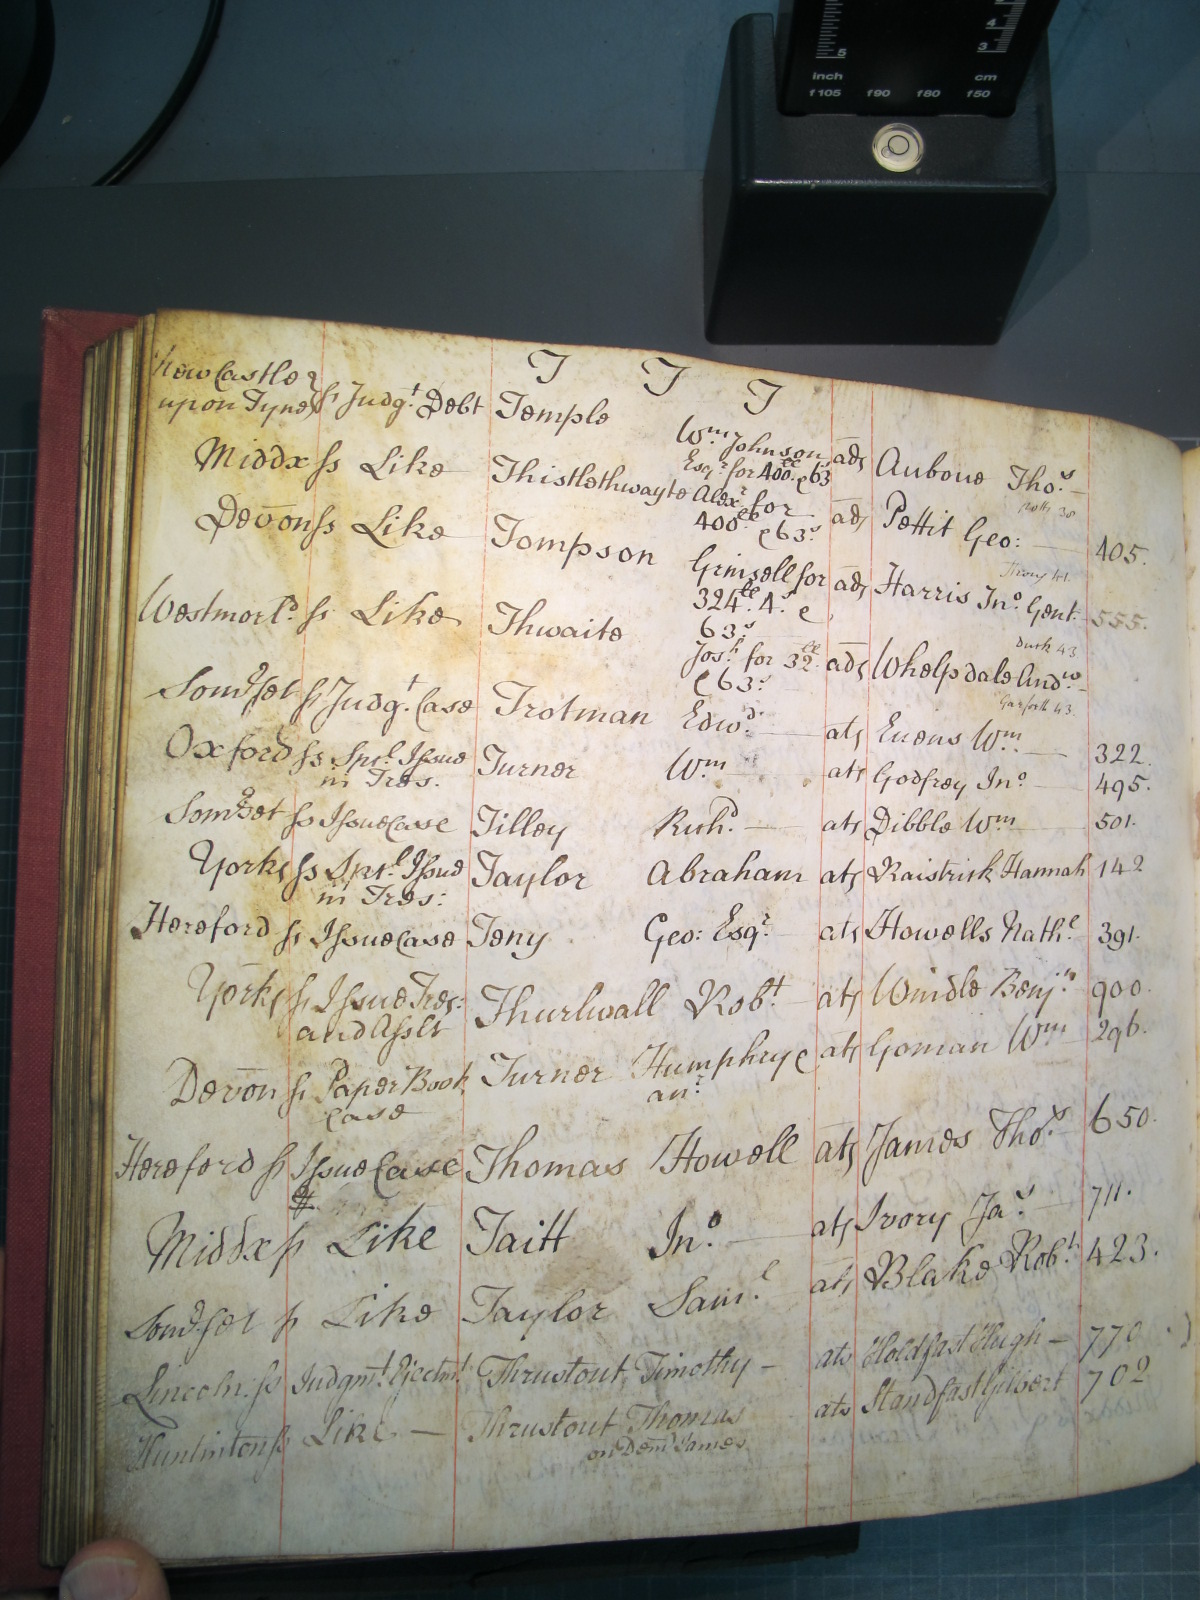 5 4 3
inch cm
f105 f90 f80 f50
T T T
New Castle
upon Tyne ss Judgt. Debt Temple Wm. Johnson ads Aubone Thos.
Esqr. for 400ll e 63
Middx ss Like Thistlethwayte Alexr. for ads Pettit Geo: 405.
400ll e 63s
Devon ss Like Tompson Grinsell for ads Harris Jno. Gent. 555.
324ll. 4s. e
63s
Westmorld. ss Like Thwaite Josh. for 32ll. ads Whelpdale Andw.
e 63s
Garforth 43
Somerset ss Judgt. Case Trotman Edwd. ats Euens Wm 322
Oxford ss Spcl. Issue Turner Wm ats Godfrey Jno 495.
in Tres.
Somerset ss Issue Case Tilley Richd. ats Dibble Wm 501.
Yorks ss Spcl. Issue Taylor Abraham ats Raistrick Hannah 142
in Tres:
Hereford ss Issue Case Teny Geo: Esqr. ats Howells Nathl. 391.
Yorks ss Issue Tres: Thurlwall Robt. ats Windle Benjn. 900.
and Asslt
Devon ss Paper Book Turner Humphry e ats Goman Wm 296.
Case anr.
Hereford ss Issue Case Thomas Howell ats James Thos. 650.
Middx ss Like Taitt Jno. ats Ivory Jas. 711.
Somerset ss Like Taylor Saml. ats Blake Robt. 423.
Lincoln: ss Judgmt. Ejectmt. Thrustout Timothy ats Holdfast Hugh 770
Huntinton ss Like Thrustout Thomas ats Standfast Gilbert 702
on Dem James